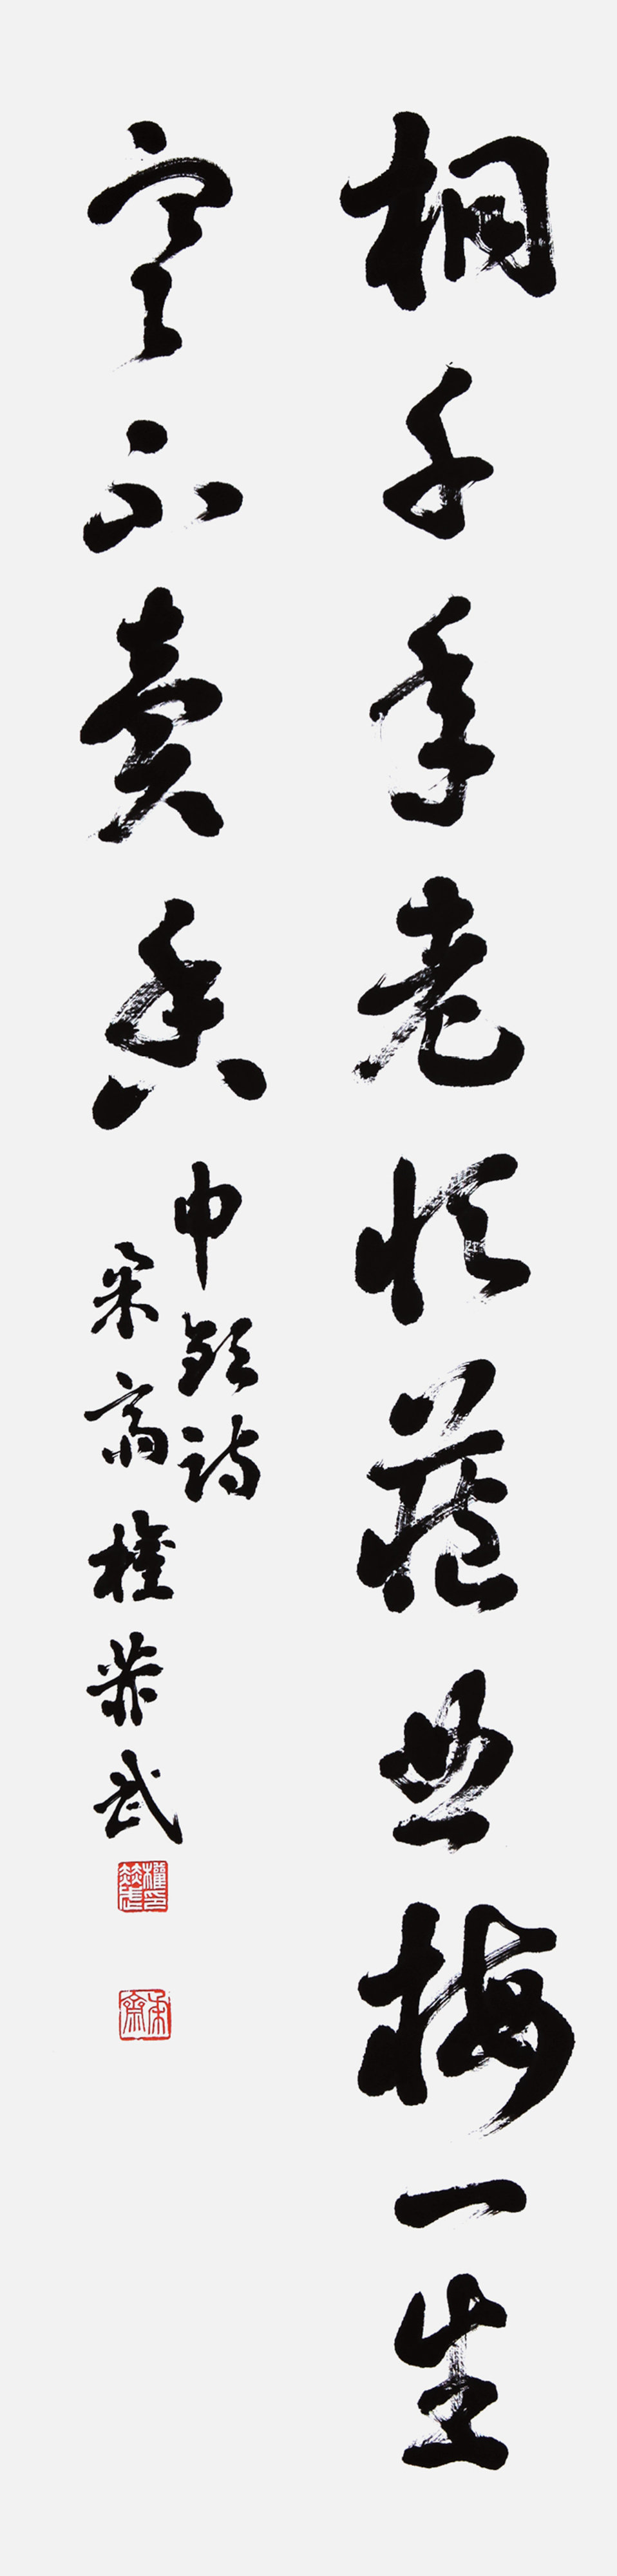 桐千年老恒藏曲梅一生
寒不賣香
申欽詩
齋權赫武